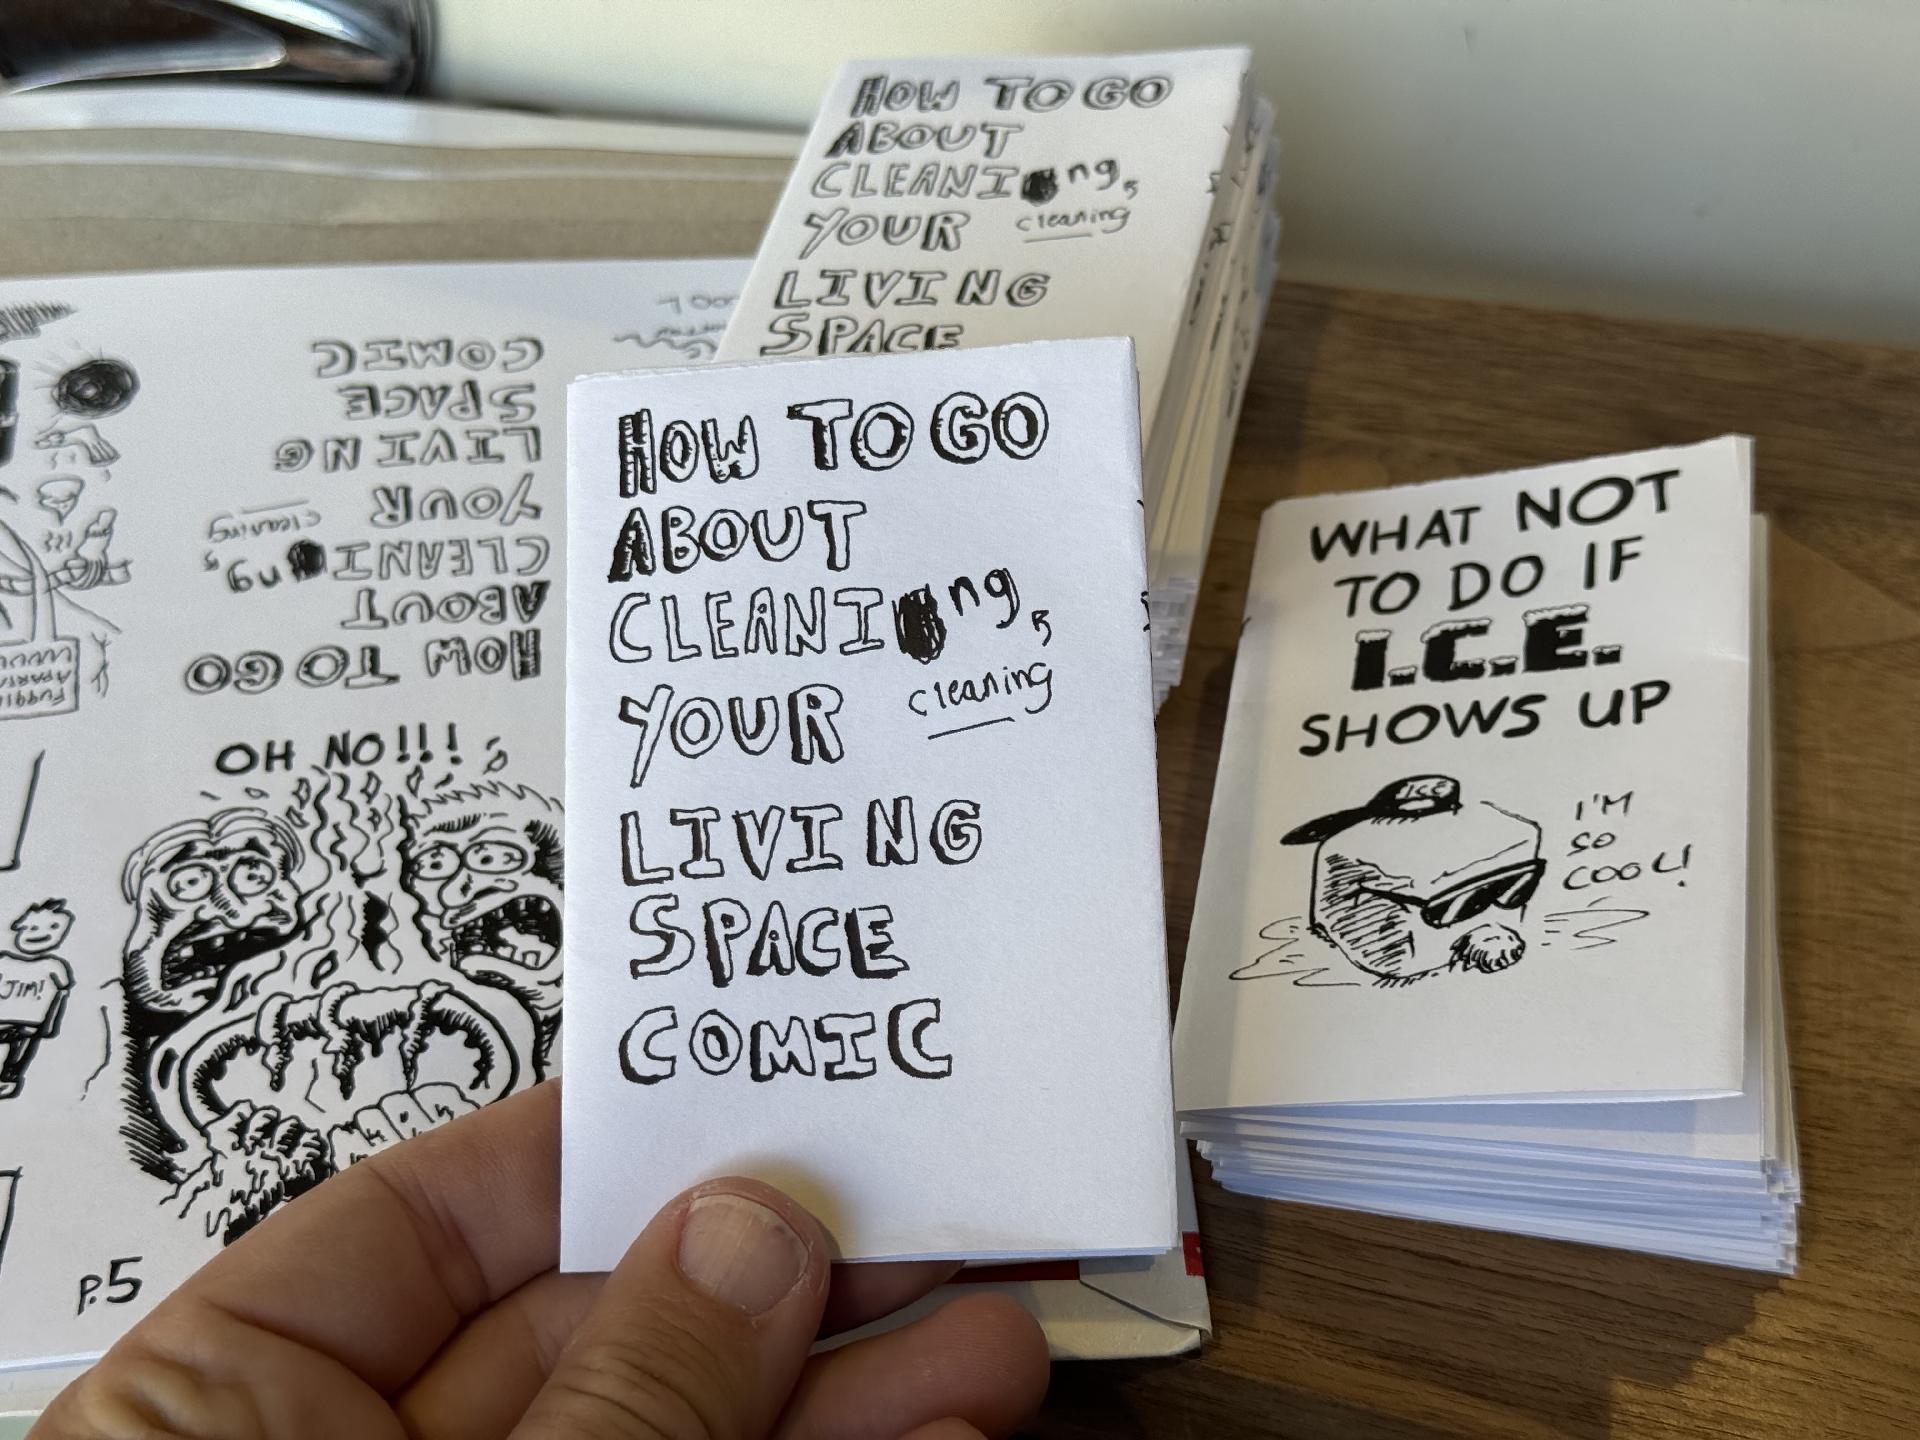 HOW TO GO
ABOUT
CLEANI ng,
cleaning
YOUR
LIVING
SPACE
HOW TO GO
ABOUT
CLEANI ng,
cleaning
YOUR
LIVING
SPACE
COMIC
WHAT NOT
TO DO IF
I.C.E.
SHOWS UP
ICE
I'M
SO
COOL!
HOW TO GO
ABOUT
CLEANI ng,
cleaning
YOUR
LIVING
SPACE
COMIC
OH NO!!!
JIM!
P.5